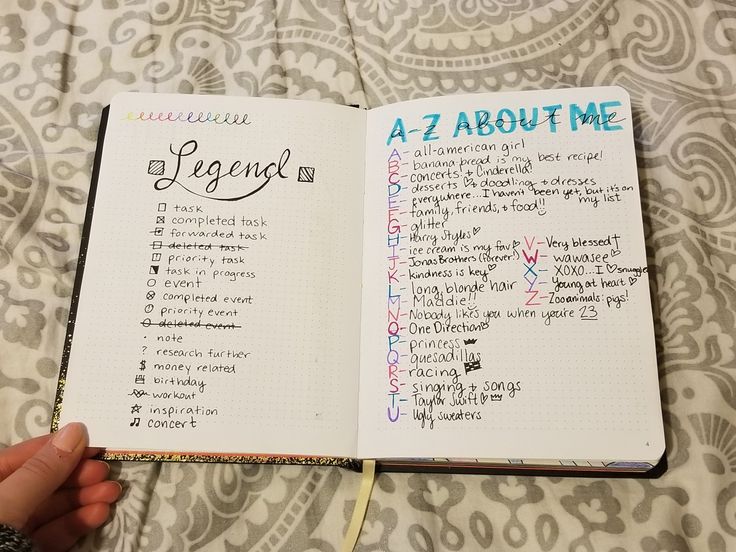 Legend
task
completed task
forwarded task
deleted task
priority task
task in progress
event
completed event
priority event
deleted event
note
? research further
$ money related
birthday
workout
inspiration
concert
A-Z ABOUT ME
a-z about me
A- all-american girl
B- banana bread is my best recipe!
C- concerts! + Cinderella!
D- desserts ♡ + doodling + dresses
E- everywhere...I haven't been yet, but it's on my list
F- family, friends, + food!!
G- glitter
H- Harry Styles ♡
I- ice cream is my fav ♡
J- Jonas Brothers (forever!)
K- kindness is key ♡
L- long, blonde hair
M- Maddie!!
N- Nobody likes you when you're 23
O- One Direction
P- princess
Q- quesadillas
R- racing
S- singing + songs
T- Taylor Swift ♡
U- Ugly sweaters
V- Very blessed †
W- wawasee ♡
X- XOXO...I ♡ snuggles
Y- Young at heart ♡
Z- Zoo animals: pigs!
4